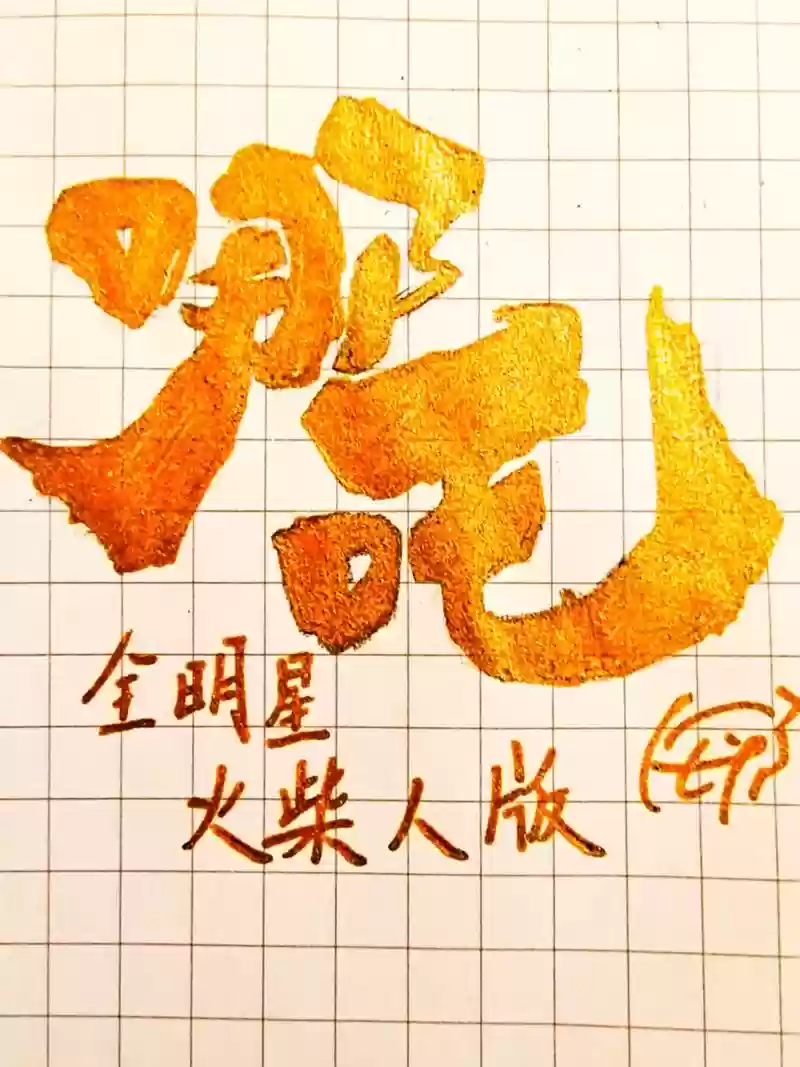 哪吒
全明星
火柴人版